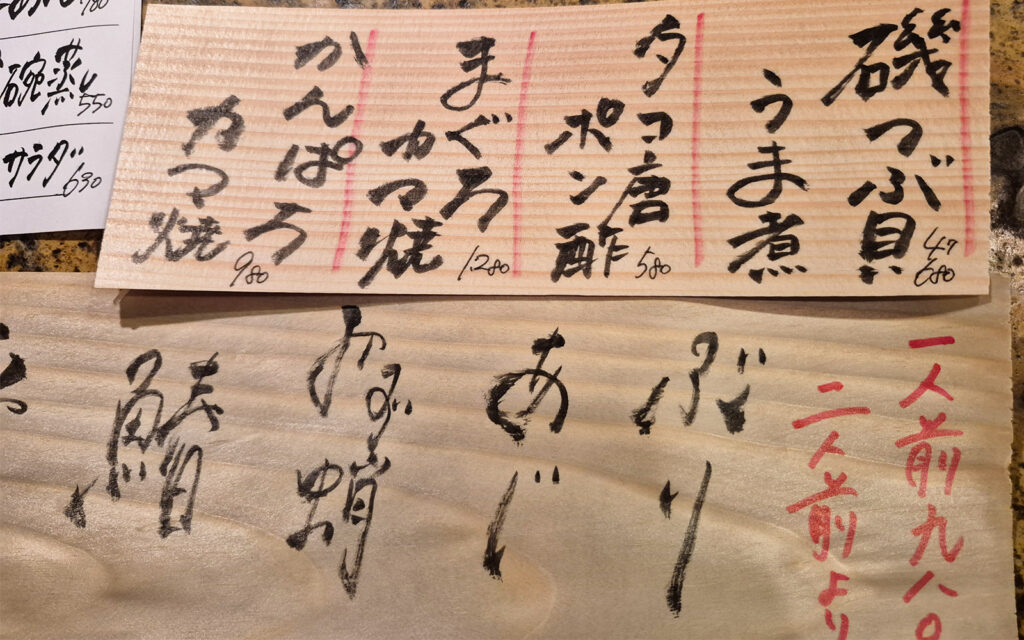 磯つぶ貝
うま煮
4ケ
680
タコ唐
ポン酢
580
まぐろ
カマ焼
1.280
かんぱち
カマ焼
980
780
碗蒸し
550
サラダ
630
一人前九八〇
二人前より
ぶり
あじ
蛸
鯖